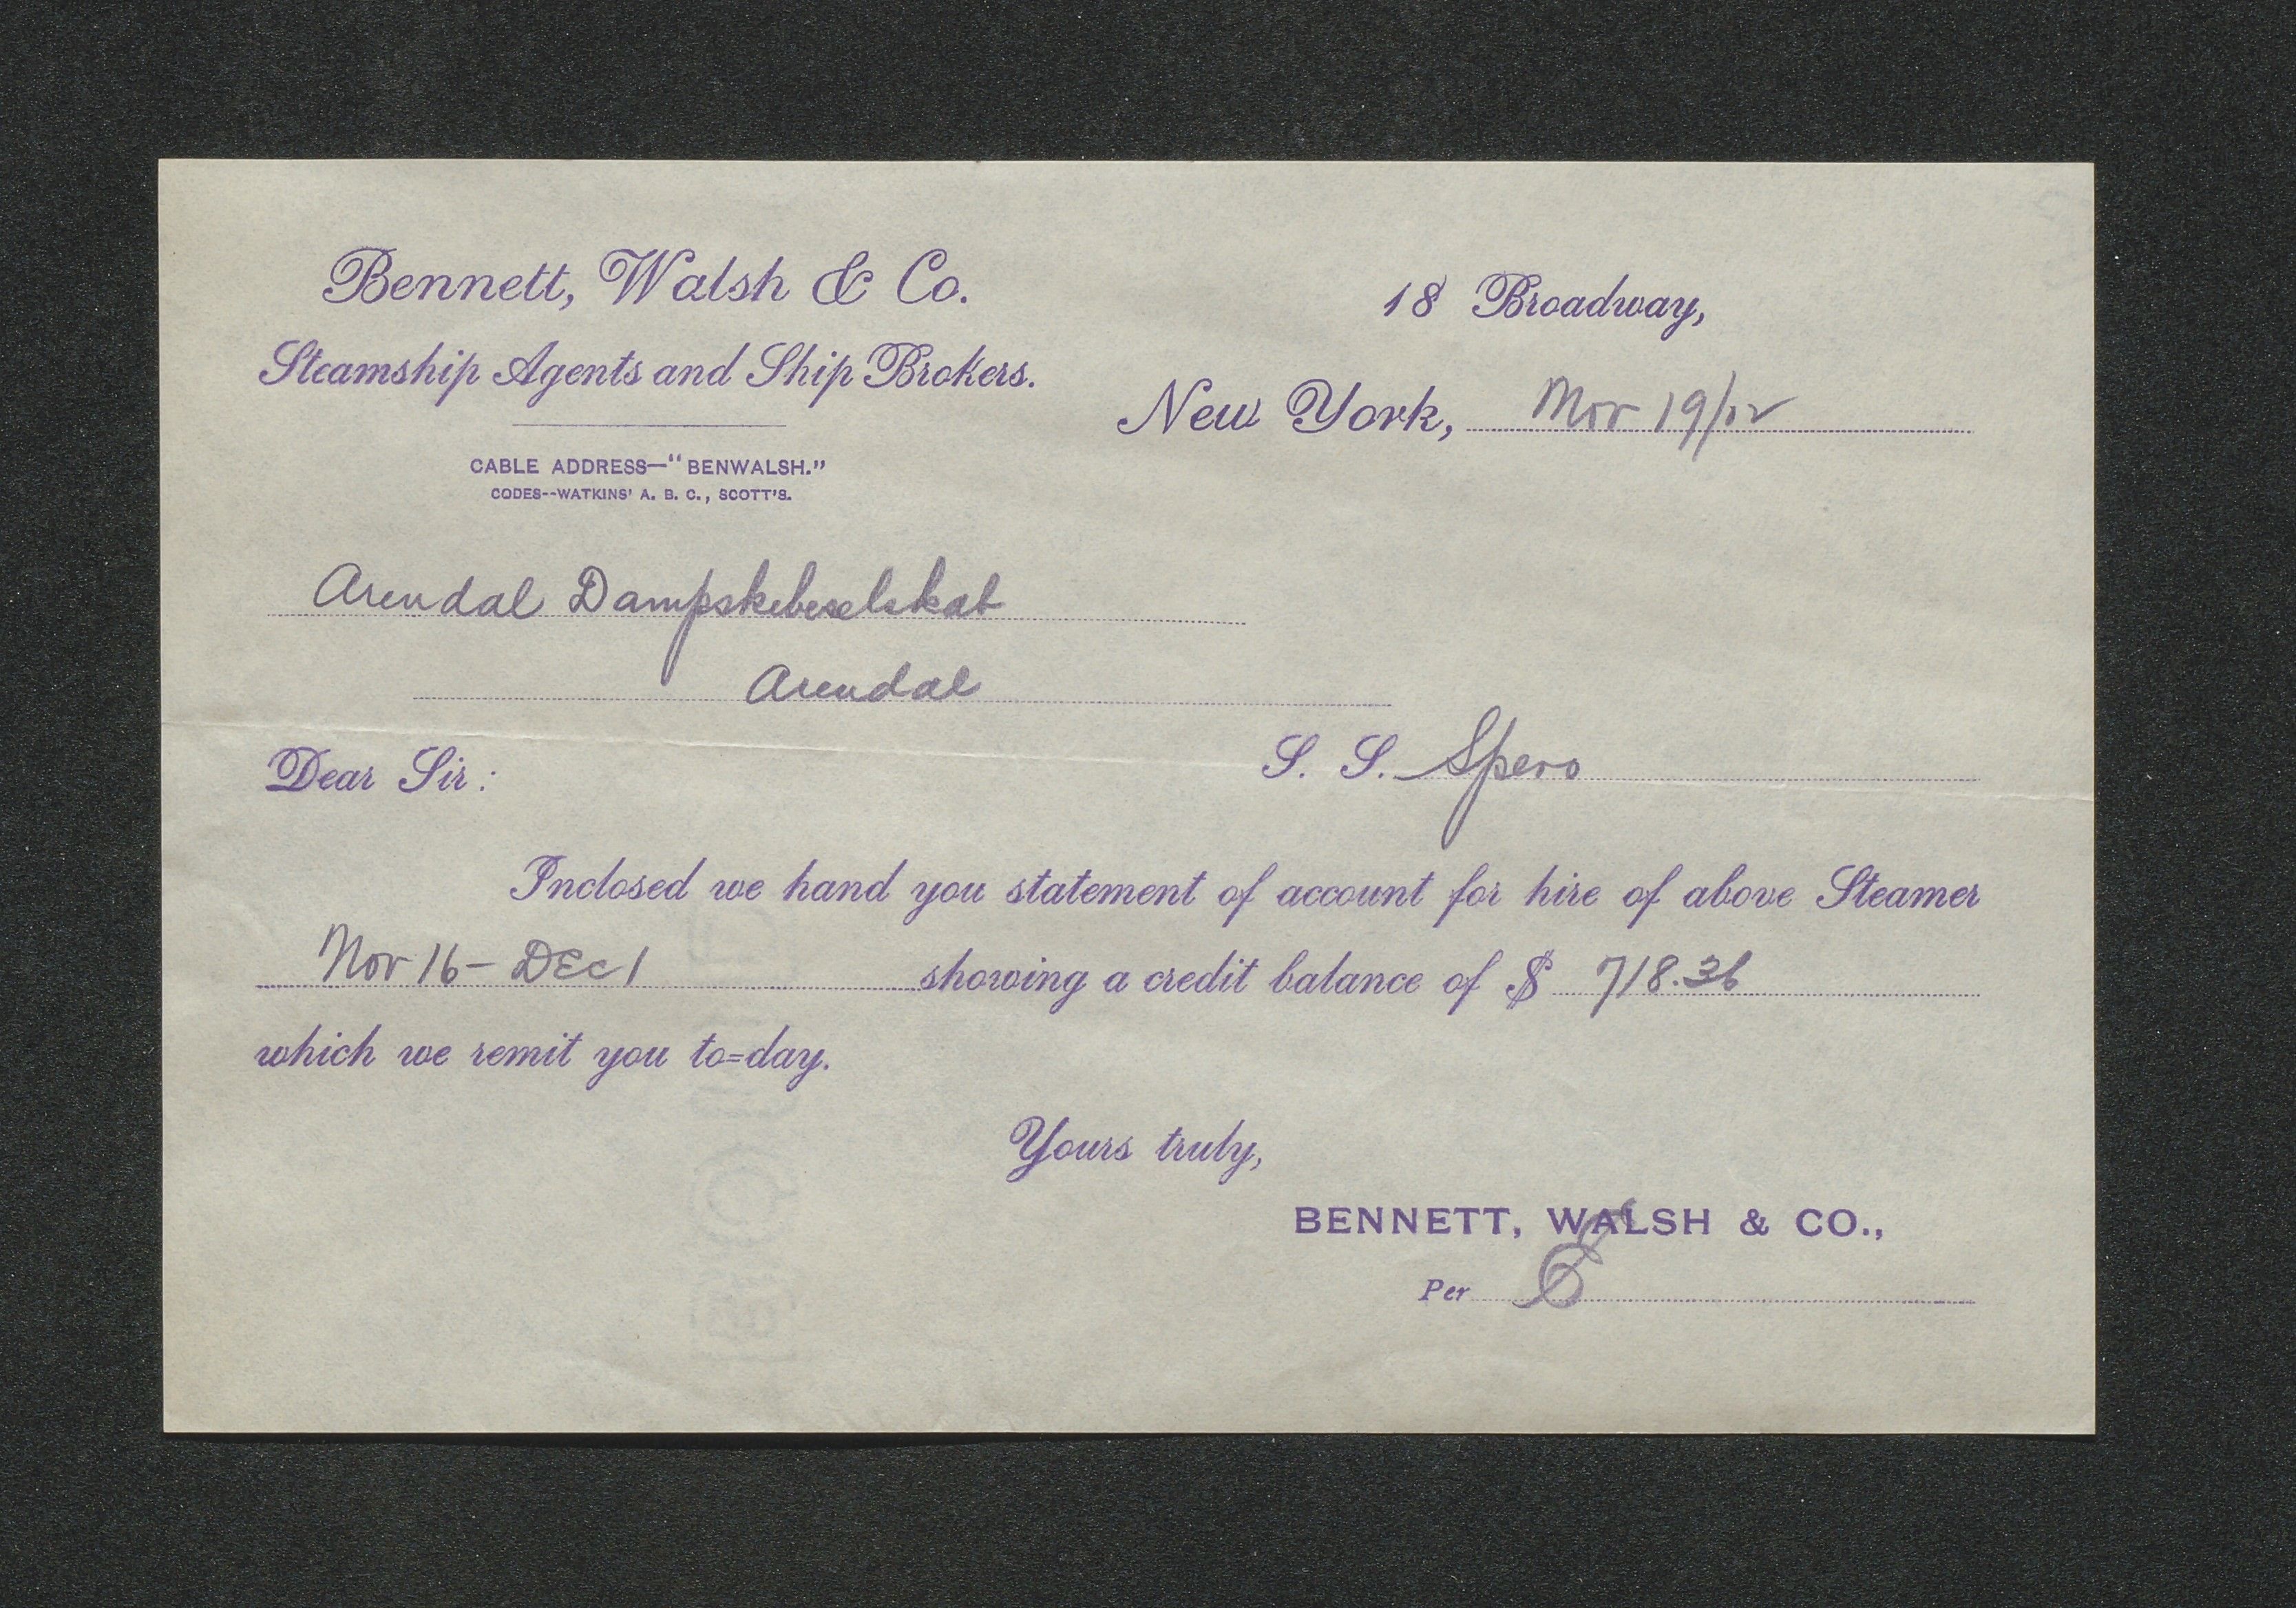 Bennett, Walsh & Co.
Steamship Agents and Ship Brokers.
CABLE ADDRESS—"BENWALSH."
CODES--WATKINS' A. B. C., SCOTT'S.
18 Broadway,
New York, Nov 19/02
Arendal Dampskebeselskab
Arendal
Dear Sir:
S. S. Spero
Inclosed we hand you statement of account for hire of above Steamer
Nov 16 - DEC 1 showing a credit balance of $ 718.36
which we remit you to=day.
Yours truly,
BENNETT, WALSH & CO.,
Per